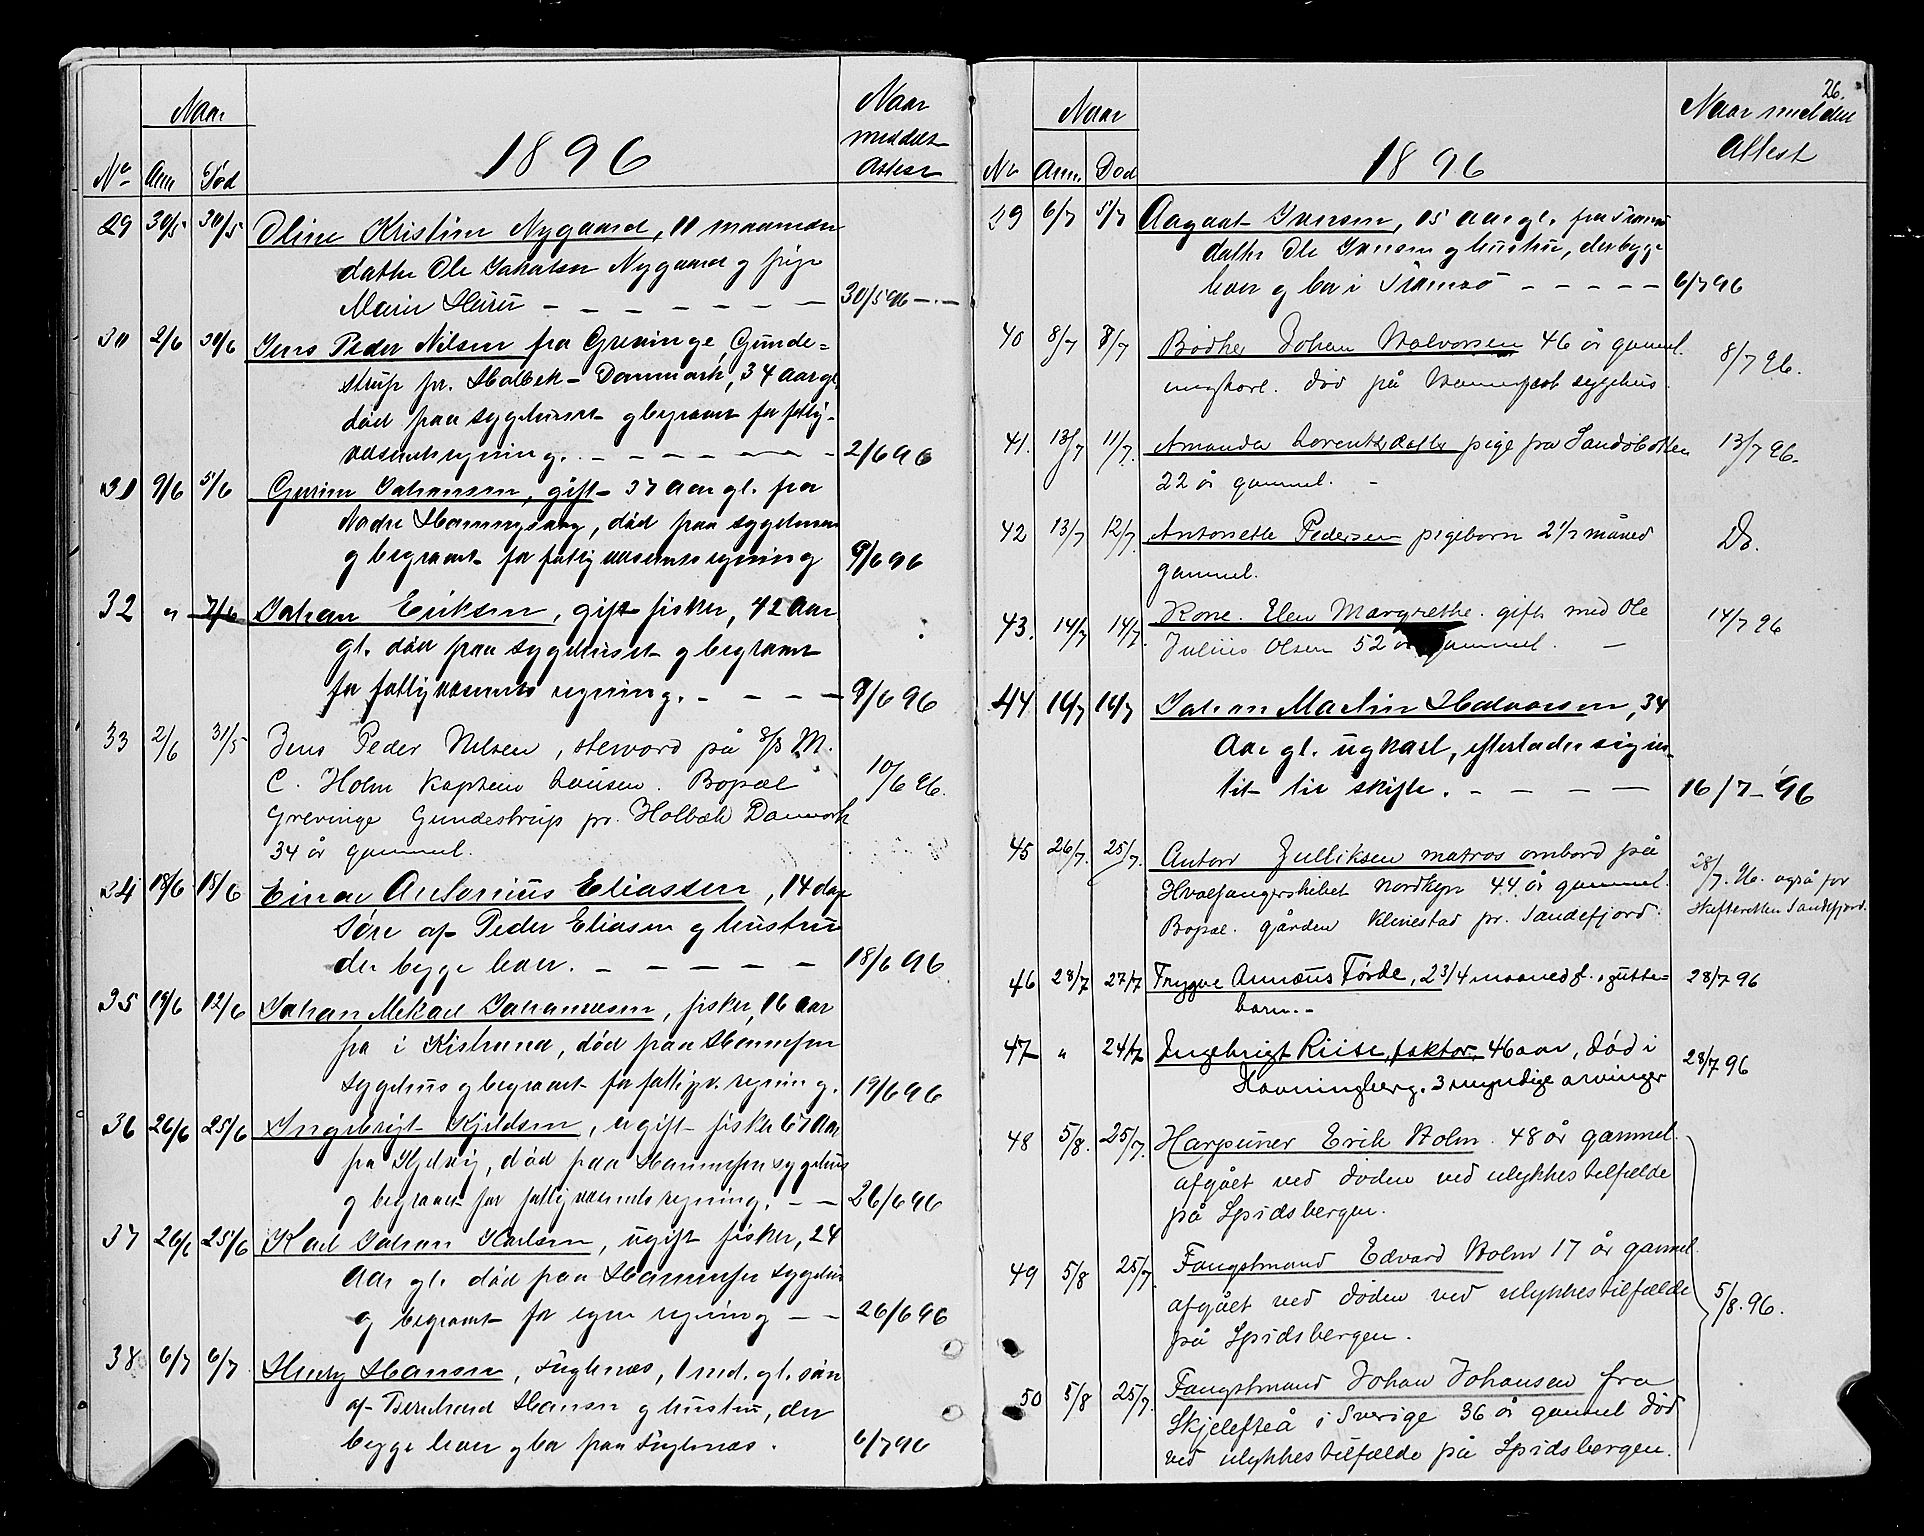 Naar
No Anm Död
1896
Naar
meddelt
Attest
29 30/5 30/5 Oline Kristine Nygaard, 11 maaneder
datter Ole Jakobsen Nygaard og pige
Marie
30/5 96
30 2/6 30/6 Jens Peder Nilsen fra Grevinge, Gunde=
strup pr. Holbek - Danmark, 34 aar gl.
död paa sygehuset og begravet for fattig-
væsenets regning.
2/6 96
31 9/6 5/6 Johansen, gift 37 aar gl. fra
Nordre Honningsvaag, död paa sygehuset
og begravet for fattigvæsenets regning
9/6 96
32 " 7/6 Johan Eriksen, gift fisker, 42 aar
gl. död paa sygehuset og begravet
for fattigvæsenets regning.
9/6 96
33 2/6 31/5 Jens Peder Nilsen, steward på S/S M.
C. Holm Kaptein Bopæl
Grevinge Gundestrup pr. Holbæk Danmark
34 år gammel.
10/6 96.
34 18/6 15/6 Einar Antonius Eliassen, 14 dage
Søn af Peder Eliasen og hustru
der begge lever.
18/6 96
35 19/6 12/6 Johan Mikal Johannesen, fisker, 16 aar
fra i Kistrand, död paa Hammerfest
Sygehus og begravet for fattigv. regning.
19/6 96
36 26/6 25/6 Ingebrigt Kjeldsen, ugift fisker 67 aar
fra död paa Hammerfest sygehus
og begravet for fattigvæsenets regning.
26/6 96
37 26/6 25/6 Karl Johan Karlsen, ugift fisker, 24
Aar gl. död paa Hammerfest sygehus
og begravet for egen regning
26/6 96
38 6/7 6/7 Henry Hansen, Fuglenæs, 1 md. gl. sön
af Bernhard Hansen og hustru, der
begge lever og bor paa Fuglenæs.
6/7 96
26.
Naar
No Anm. Død
1896
Naar meddelt
Attest
39 6/7 5/7 Aagaat Ivansen, 15 aar gl. fra Tromsö
datter Ole Ivansen og hustru, der begge
lever og bor i Tromsö
6/7 96
40 8/7 8/7 Bødker Johan Halvorsen 46 år gammel.
ungkarl. død på Hammerfest sygehus.
8/7 96.
41. 13/7 11/7. Amanda Lorentzdatter pige fra Sandøbotten
22 år gammel.
13/7 96.
42 13/7 12/7. Antonette Pedersen pigebarn 2 1/2 måned
gammel.
Do.
43. 14/7 14/7. Kone. Elen Margrethe. gift med Ole
Julius Olsen 52 år gammel.
14/7 96
44 16/7 16/7 Johan Martin Halvorsen, 34
Aar gl. ugkarl, efterlader sig in-
tet til skifte.
16/7 - 96
45 26/7. 25/7. Anton Julliksen matros ombord på
Hvalfangerskibet Nordkyn 44 år gammel.
Bopæl. gården Klinestad pr. Sandefjord.
28/7. 96. også for
Skifteretten Sandefjord.
46 28/7 27/7 Trygve Annæus Förde, 2 3/4 maaned g. gutte-
barn.-
28/7 96
47 " 24/7 Ingebrigt Riise, faktor, 46 aar, död i
Havningberg. 3 umyndige arvinger
28/7 96
48 5/8. 25/7. Harpuner Erik Holm. 48 år gammel.
afgået ved døden ved ulykkestilfælde
på Spidsbergen.
49 5/8 25/7. Fangstmand Edvard Holm 17 år gammel.
afgået ved døden ved ulykkestilfælde
på Spidsbergen.
5/8. 96.
50 5/8 25/7. Fangstmand Johan Johansen fra
Skjelefteå i Sverige 36 år gammel død
ved ulykkestilfælde på Spidsbergen.